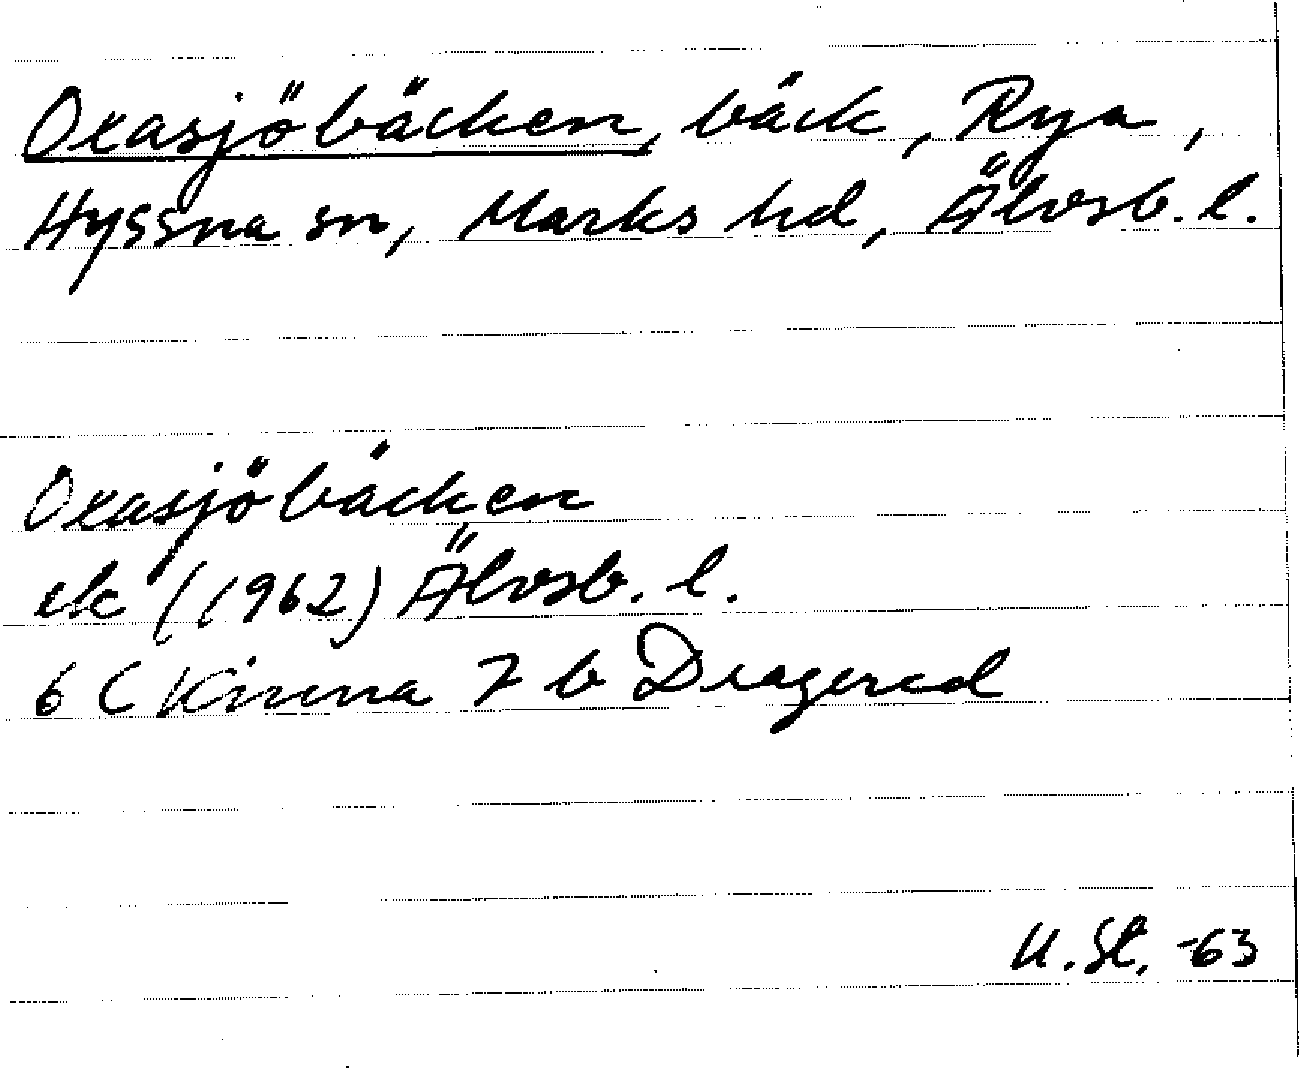 Oxasjöbäcken, bäck, Rya,
Hyssna sn, Marks hd, Älvsb. l.
Oxasjöbäcken
ek (1962) Älvsb. l.
6 C Kinna 7 b Dragered
U. St. -63